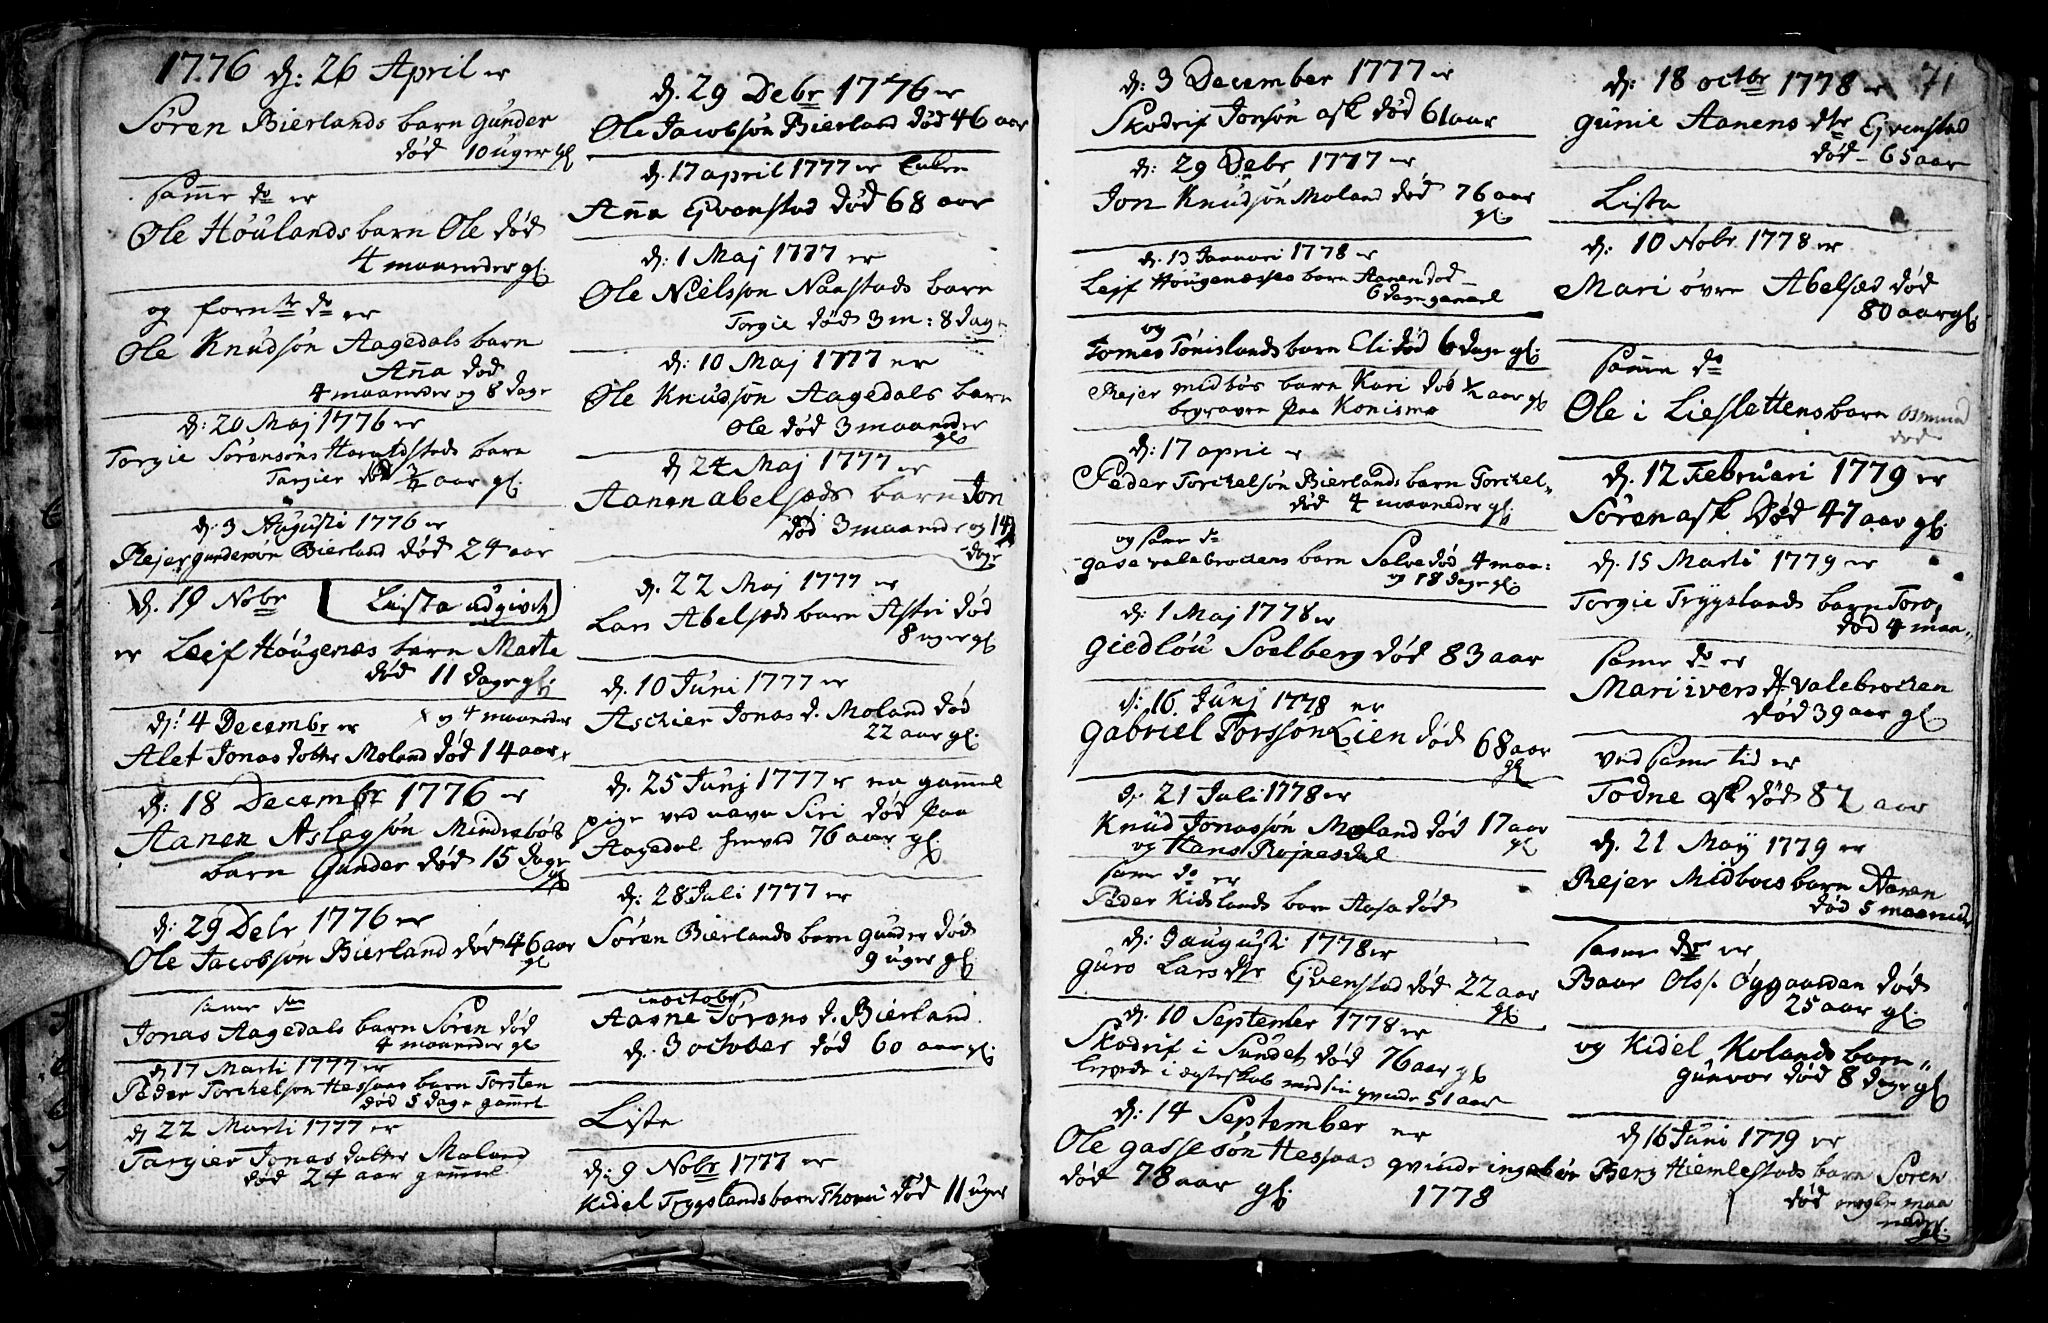 1776 d: 26 April er
Sören Bierlands barn Gunder
død 10 uger gl
Samme do er
Ole Höulands barn Ole død
4 maaneder gl:
og fornte do er
Ole Knudsön Aagedals barn
Anna død
4 maaneder og 8 dage
d: 20 Maj 1776 er
Torgie Sörensöns Haraldstads barn
Targier død 3/4 aar gl:
d: 3 Augusti 1776 er
Rejer gundersön Bierland død 24 aar
d. 19 Nobr Lista udgivet
er Leif Höugenæs barn Marte
død 11 dage gl:
d: 4 Decembr er x og 4 maaneder
Alet Jonas dotter Moland død 14 aar x
d: 18 Decembr 1776 er
Aanen Aslagsön Mindrebös
barn Gunder død 15 dage
gl
d: 29 Debr 1776 er
Ole Jacobsön Bierland død 46 aar
gl
same dao
Jonas Aagedals barn Sören død
4 maaneder gl
d 17 Marti 1777 er
Peder Torchelson Hessaas barn Torsten
død 5 dage gammel
d 22 Marti 1777 er
Targier Jonas dotter Moland
død 24 aar gammel
d. 29 Debr 1776 er
Ole Jacobsön Bierland død 46 aar
d. 17 april 1777 er Enken
Anna Evenstad død 68 aar
d: 1 Maj 1777 er
Ole Nielsson Naastads barn
Torgie død 3 m: 8 dage
d: 10 Maj 1777 er
Ole Knudsön Aagedals barn
Ole død 3 maaneder
gl
d 24 Maj 1777 er
Aanen abelsæds barn Jon
død 3 maaneder og 14
dage
d. 22 Maj 1777 er
Lars Abelsæds barn Astri død
8 uger gl
d. 10 Juni 1777 er
Aschier Jonas d. Moland død
22 aar gl.
d. 25 Junj 1777 er en gammel
pige ved navn Siri død paa
Aagedal henved 76 aar gl
d: 28 Juli 1777 er
Sören Bierlands barn gunder død
9 uger gl:
in octobr
Aasne Sörens d. Bierland
d. 3 october død 60 aar gl:
Lista
d: 9 Nobr 1777 er
Kidel Trygslands barn Thomi død 11 uger
d: 3 December 1777 er
Skodrif Jonsön ask død 61 aar
d: 29 Debr 1777 er
Jon Knudsön Moland død 76 aar
gl.
d. 13 Januari 1778 er
Leif Höugenæsses barn Aanen død
6 dage gamel
og
Tomes Tönislands barn Eli død 6 dage gl:
Rejer midbös barn Kari død 1/2 aar gl
begraven paa Konismo
d: 17 april er
Peder Torchelsön Bierlands barn Torchel
død 4 maaneder gl:
og same do
gase valebrochens barn Salve død 4 maa:
og 18 dage gl:
d: 1 Maj 1778 er
giedlöu Soelberg død 83 aar
d: 16 Junj 1778 er
Gabriel Torsson Lien død 68 aar
gl
d: 21 Juli 1778 er
Knud Jonassön Moland død 17 aar
og Hans Röjnesdal gl
same do er
Peder Kidslands barn Aasa død
d: 3 augusti 1778 er
guro Lars dtr Evenstad død 22 aar
gl:
d. 10 September 1778 er
Skodrif i Sundet død 76 aar gl
levede i ægteskab med sin qvinde 51 aar
d: 14 September er
Ole gassesön Hessaas qvinde ingebör
død 78 aar gl: 1778
71
d: 18 octbr 1778 er
gunie Aanens dtr Evenstad
død 65 aar
Lista
d: 10 Nobr 1778 er
Mari övre Abelsæd død
80 aar gl.
Samme do
Ole i Lieslettens barn Osmund
død
d. 12 Februari 1779 er
Sören ask død 47 aar gl.
d. 15 Marti 1779 er
Torgie Trygslands barn Tora
død 4 maa
same do er
Mari ivers d. valebrochen
død 39 aar gl
ved same tid er
Todne ask død 82 aar
d. 21 Maÿ 1779 er
Rejer Midboes barn Aanen
død 5 maaneder
same do er
Baar Ols s. Öygaarden død
25 aar gl.
og Kidel Kolands barn
Gunvor død 8 dage gl
d 16 Juni 1779 er
Berg Hiemlestads barn Sören
død nogle maa
neder
gl.